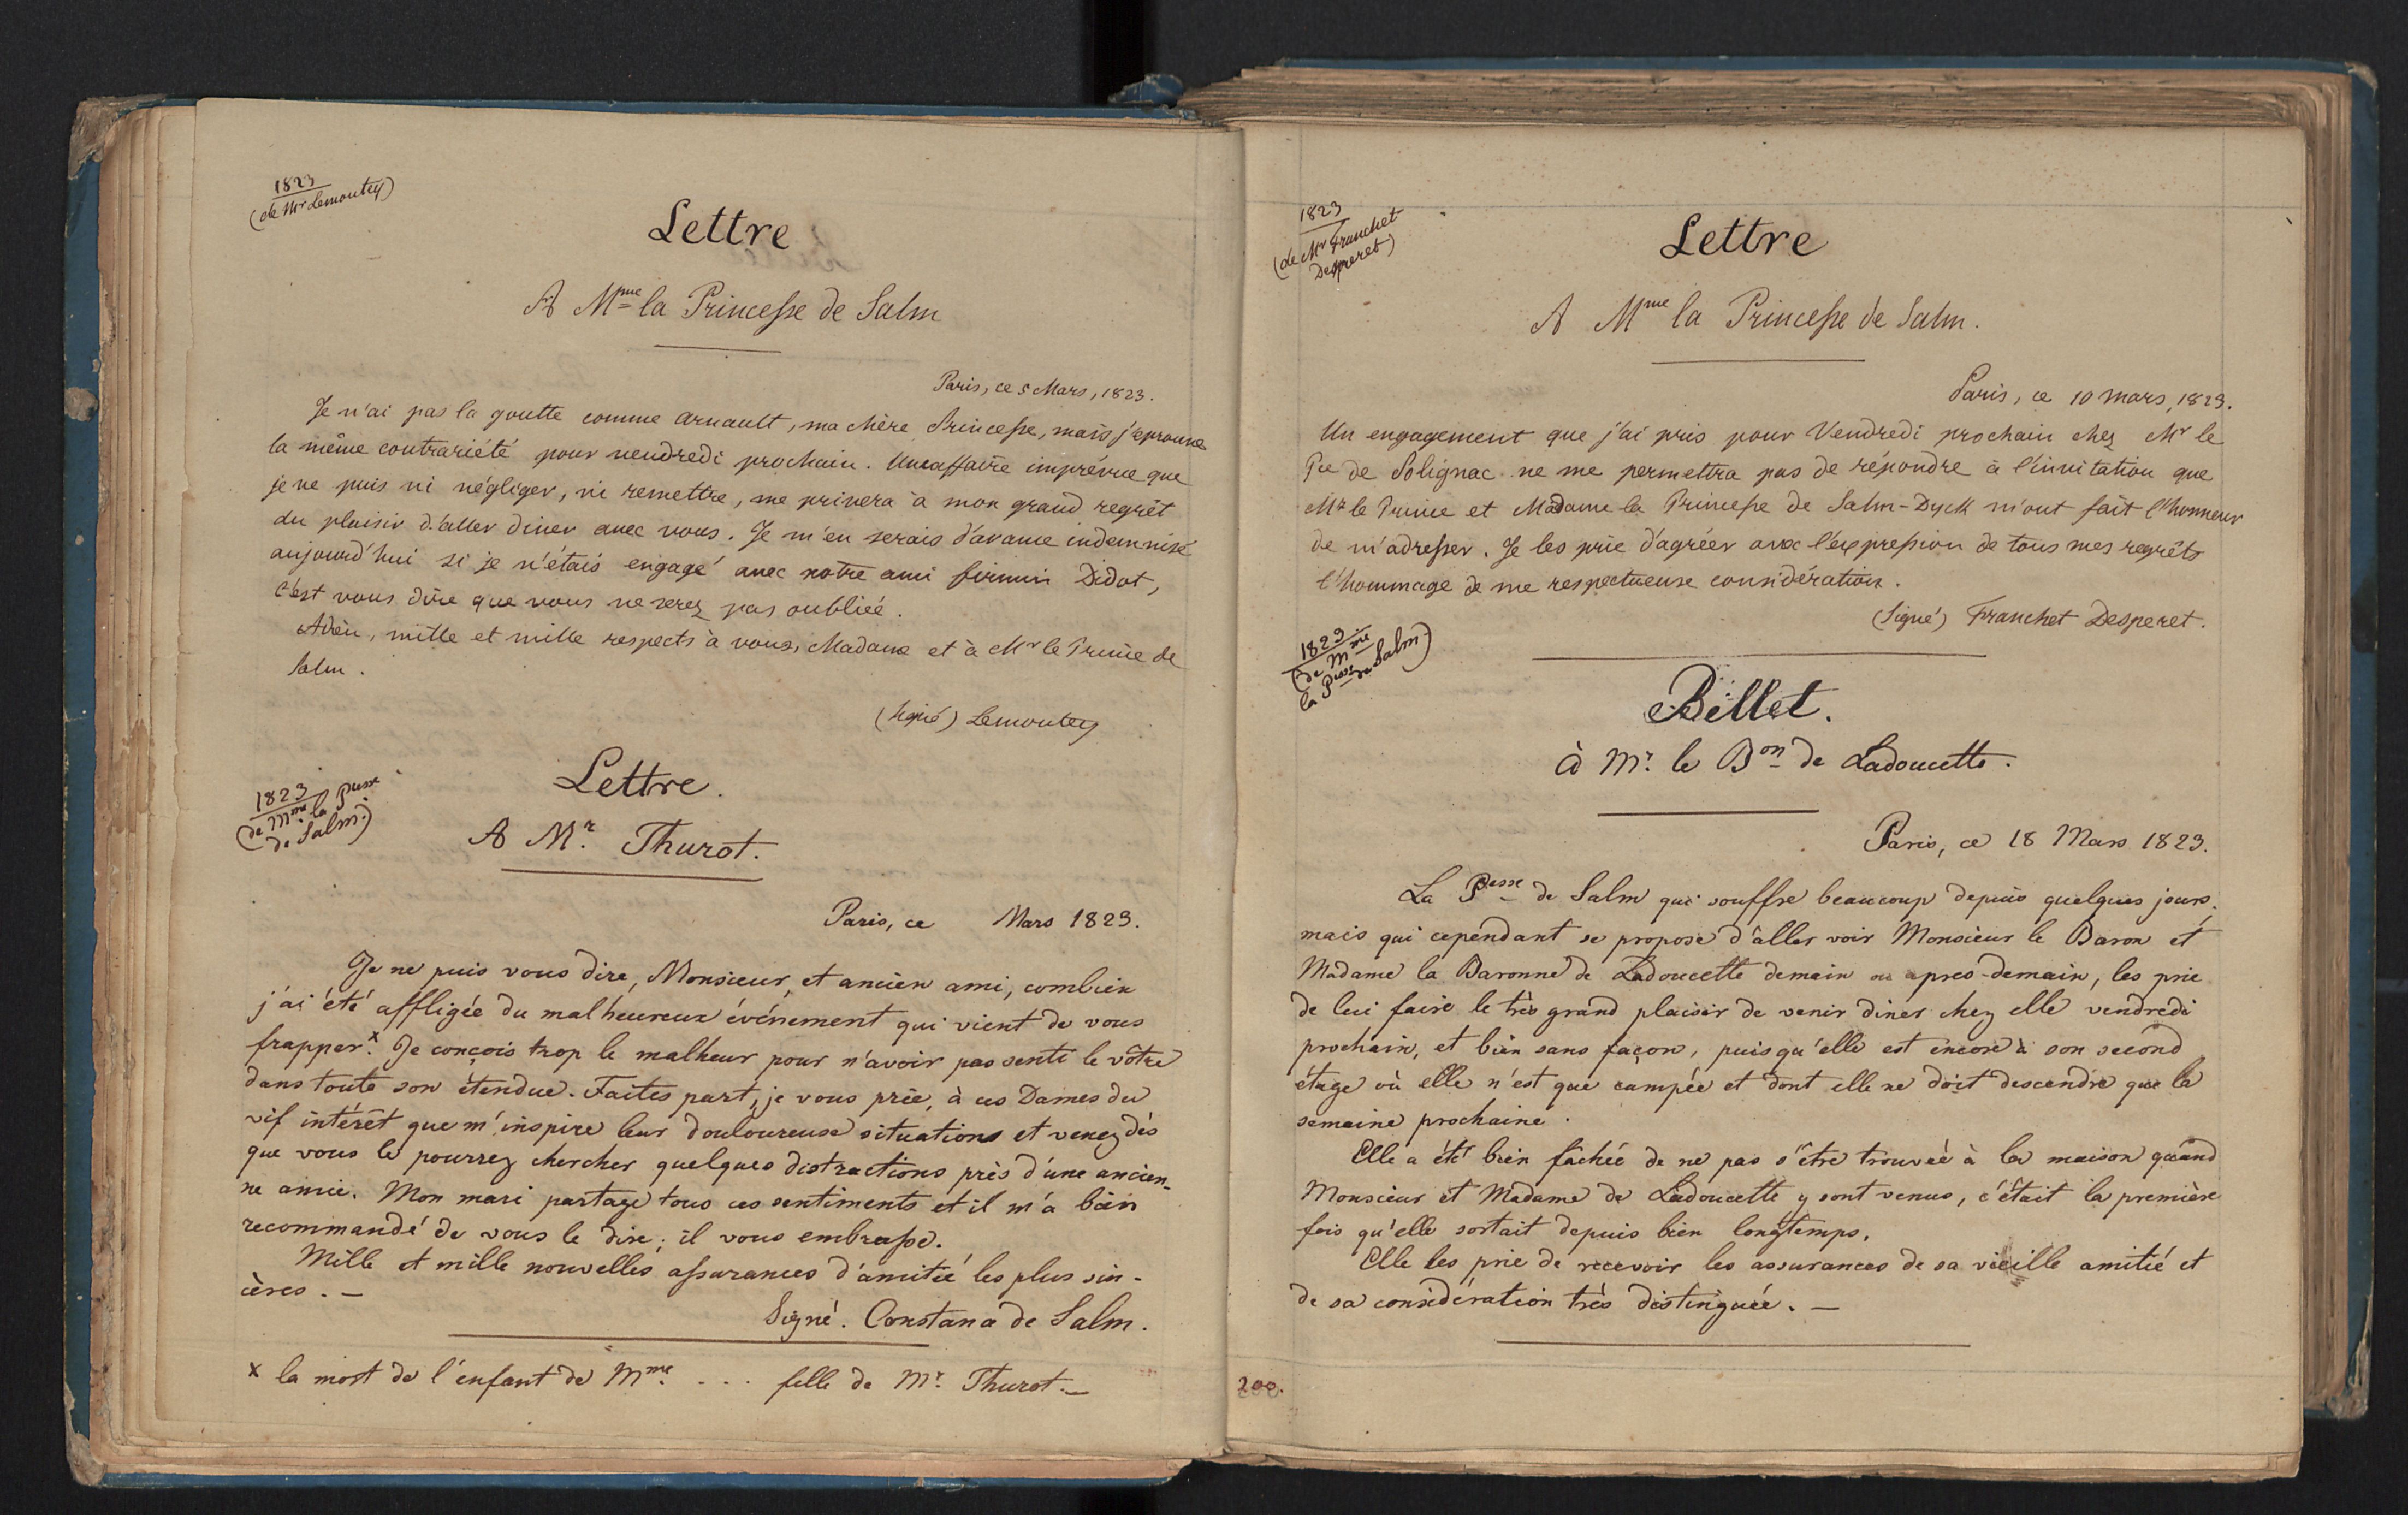 1823
(de Mr Lemontey)
Lettre
A Mme la Princesse de Salm
Paris, ce 5 Mars, 1823.
Je n'ai pas la goutte comme Arnault, ma chère Princesse, mais j'éprouve
la même contrariété pour vendredi prochain. Une affaire imprévue que
je ne puis ni négliger, ni remettre, me privera à mon grand regrêt
du plaisir d'aller diner avec vous. Je m'en serais d'avance indemnisé
aujourd'hui si je n'étais engagé avec notre ami firmin Didot,
c'est vous dire que vous ne serez pas oubliée.
Adieu, mille et mille respects à vous, Madame et à Mr le Prince de
Salm.
(signé) Lemontey
1823
(de Mme la Pesse
de Salm.)
Lettre.
A Mr. Thurot.
Paris, ce Mars 1823.
Je ne puis vous dire, Monsieur, et ancien ami, combien
j'ai été affligée du malheureux événement qui vient de vous
frapper x. Je conçois trop le malheur pour n'avoir pas senti le vôtre
dans toute son étendue. Faites part, je vous prie, à ces Dames du
vif intérêt que m'inspire leur douloureuse situation et venez dès
que vous le pourrez chercher quelques distractions près d'une ancien-
ne amie. Mon mari partage tous ces sentiments et il m'a bien
recommandé de vous le dire; il vous embrasse.
Mille et mille nouvelles assurances d'amitié les plus sin-
cères. —
Signé. Constance de Salm.
x la mort de l'enfant de Mme. ... fille de Mr. Thurot. —
1823
(de Mr Franchet
Desperet)
Lettre
A Mme la Princesse de Salm.
Paris, ce 10 mars, 1823.
Un engagement que j'ai pris pour Vendredi prochain chez Mr le
Pce de Polignac ne me permettra pas de répondre à l'invitation que
Mr le Prince et Madame la Princesse de Salm-Dyck m'ont fait l'honneur
de m'adresser. Je les prie d'agréer avec l'expression de tous mes regrêts
l'hommage de me respectueuse considération.
(Signé) Franchet Desperet.
1823
(de Mme
la Pesse de Salm)
Billet.
à Mr. le Bon de Ladoucette.
Paris, ce 18 Mars 1823.
La Pesse de Salm qui souffre beaucoup depuis quelques jours,
mais qui cependant se propose d'aller voir Monsieur le Baron et
Madame la Baronne de Ladoucette demain ou apres-demain, les prie
de lui faire le très grand plaisir de venir diner chez elle vendredi
prochain, et bien sans façon, puisqu'elle est encore à son second
étage où elle n'est que campée et dont elle ne doit descendre que la
semaine prochaine.
Elle a été bien fâchée de ne pas s'être trouvée à la maison quand
Monsieur et Madame de Ladoucette y sont venus, c'était la première
fois qu'elle sortait depuis bien longtemps.
Elle les prie de recevoir les assurances de sa vieille amitié et
de sa considération très distinguée. —
200.